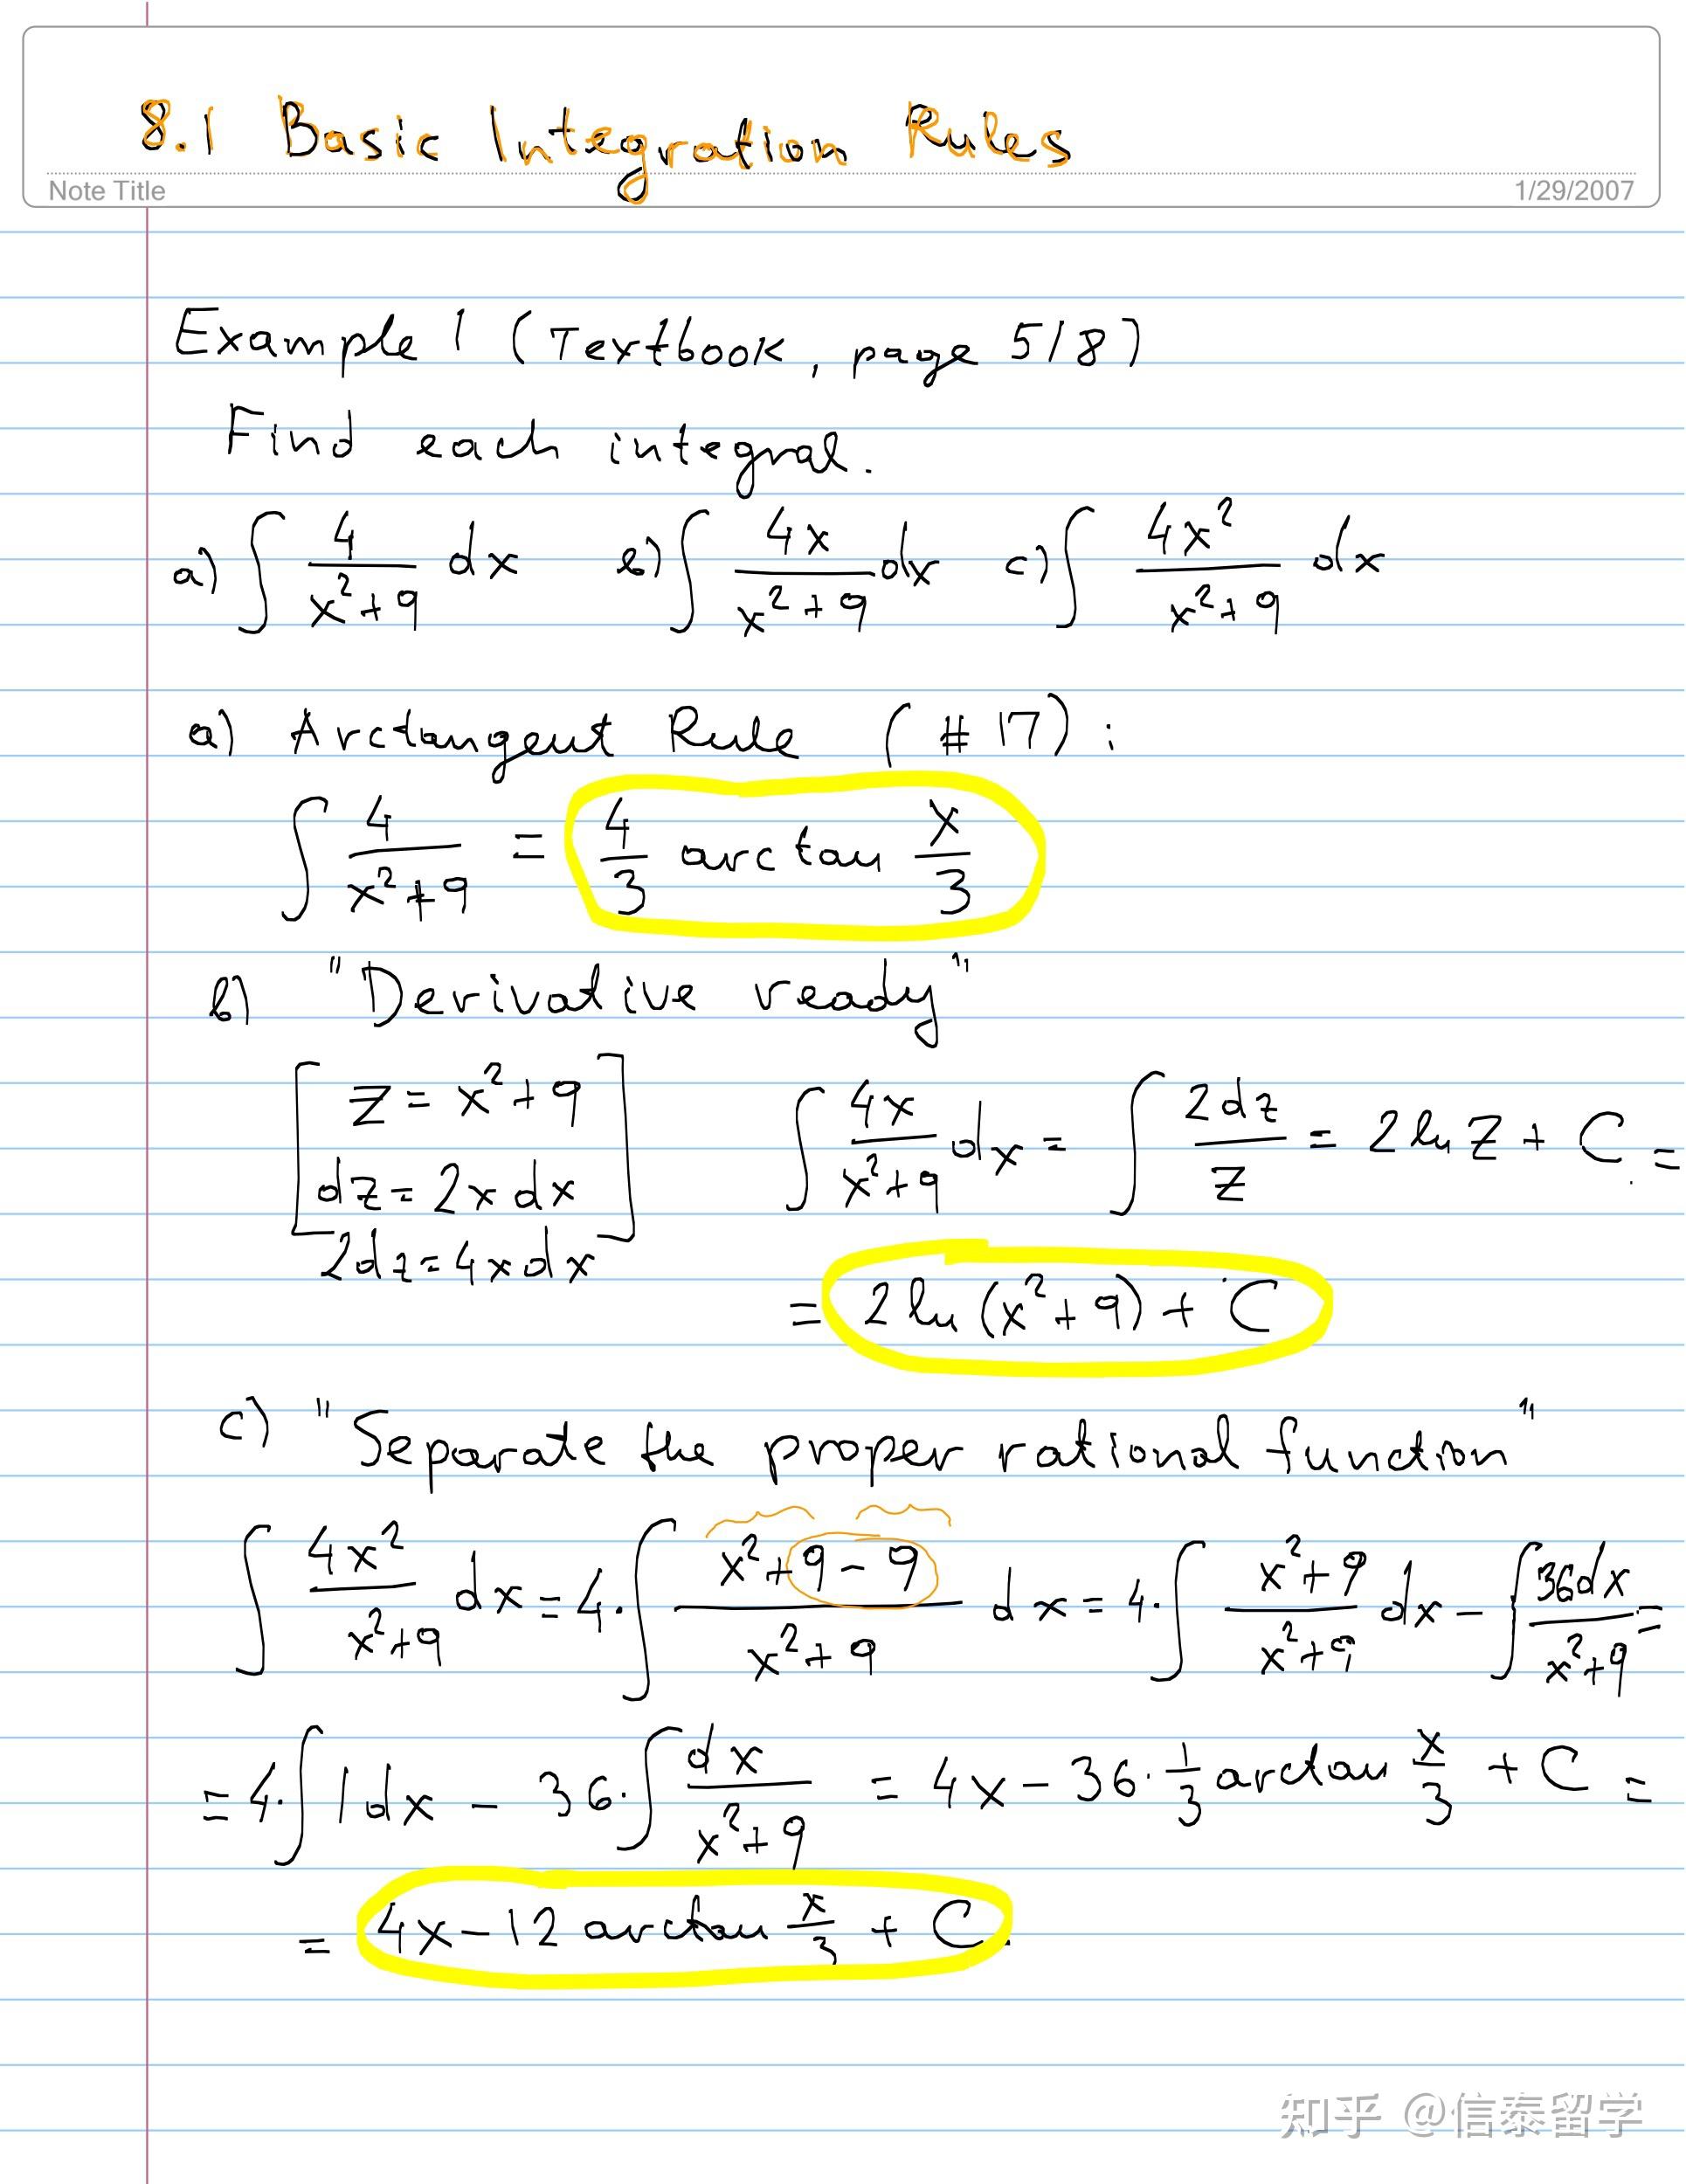 8.1 Basic Integration Rules
Note Title 1/29/2007
Example 1 (Textbook, page 518)
Find each integral.
a) ∫ 4/(x²+9) dx b) ∫ 4x/(x²+9) dx c) ∫ 4x²/(x²+9) dx
a) Arctangent Rule (#17):
∫ 4/(x²+9) = 4/3 arctan x/3
b) "Derivative ready"
[z = x²+9
dz = 2x dx]
2dz = 4x dx
∫ 4x/(x²+9) dx = ∫ 2dz/z = 2 ln z + C =
= 2 ln (x²+9) + C
c) "Separate the proper rational function"
∫ 4x²/(x²+9) dx = 4·∫ (x²+9-9)/(x²+9) dx = 4·∫ (x²+9)/(x²+9) dx - ∫ 36dx/(x²+9) =
= 4·∫ 1dx - 36·∫ dx/(x²+9) = 4x - 36·1/3 arctan x/3 + C =
= 4x - 12 arctan x/3 + C.
知乎 @信泰留学